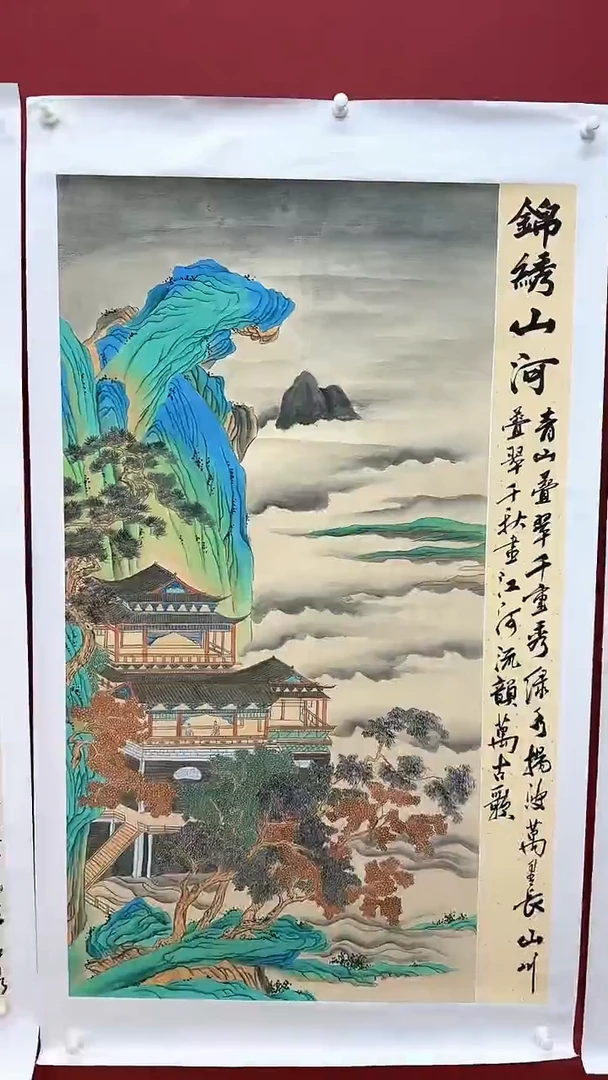 錦綉山河
青山叠翠千重秀绿水揚波萬里長山川
叠翠千秋画江河流韻萬古歌